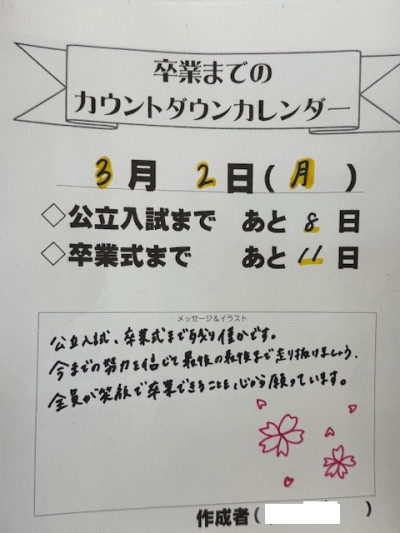 卒業までの
カウントダウンカレンダー
3月 2日(月)
◇公立入試まで あと 8 日
◇卒業式まで あと 11 日
メッセージ&イラスト
公立入試、卒業式まで残り僅かです。
今までの努力を信じて最後の最後まで走り抜けましょう。
全員が笑顔で卒業できることを心から願っています。
作成者( )